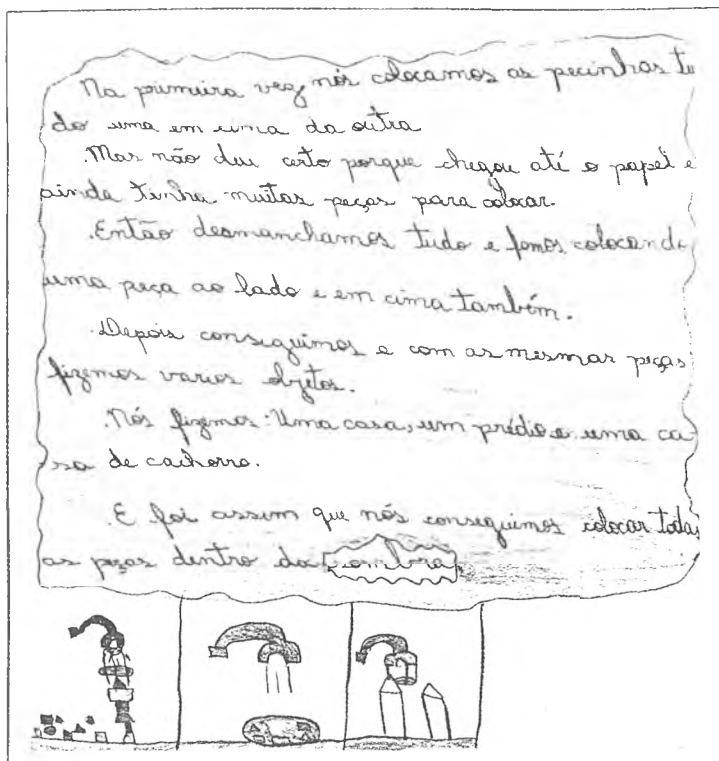 Na primeira vez nós colocamos as pecinhas tu
do uma em cima da outra
.Mas não deu certo porque chegou até o papel e
ainda tinha muitas peças para colocar.
.Então desmanchamos tudo e fomos colocando
uma peça ao lado e em cima também.
.Depois conseguimos e com as mesmas peças
fizemos varios objetos.
.Nós fizemos: Uma casa, um prédio e uma ca
sa de cachorro.
E foi assim que nós conseguimos colocar todas
as peças dentro da sombra